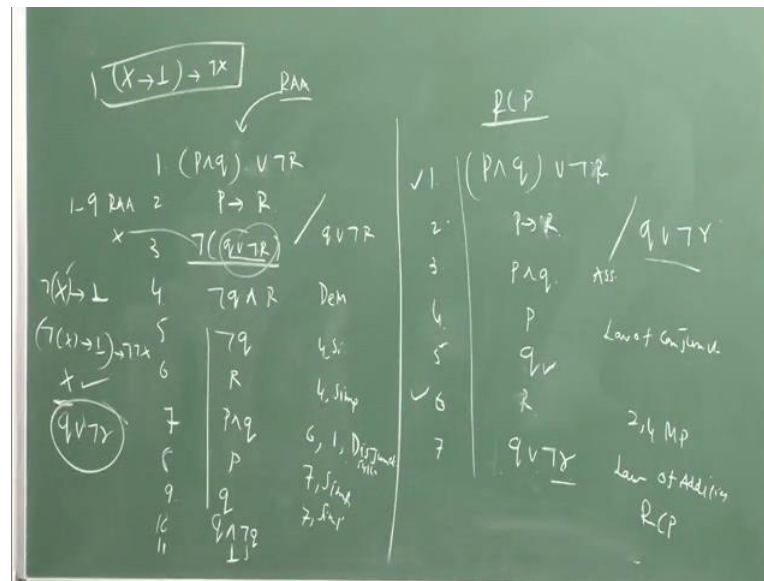 1 (X→⊥)→¬X
RAA
1. (P∧q) ∨ ¬R
1-9 RAA 2 P→R
X 3 ¬(q∨¬R) / q∨¬R
¬(X)→⊥ 4 ¬q∧R Dem
(¬(X)→⊥)→¬¬X 5 ¬q 4, Si.
X ✓ 6 R 4, Simp
q∨¬r 7 P∧q 6, 1, Disjunct
8 P 7, Simp
9. q 7, Simp
10 q∧¬q
11 ⊥
RCP
✓1. (P∧q) ∨¬R
2. P→R / q∨¬r
3. P∧q Ass.
4. P Law of Conjunct.
5 q✓
✓6 R 2,4 MP
7 q∨¬r Law of Addition
RCP